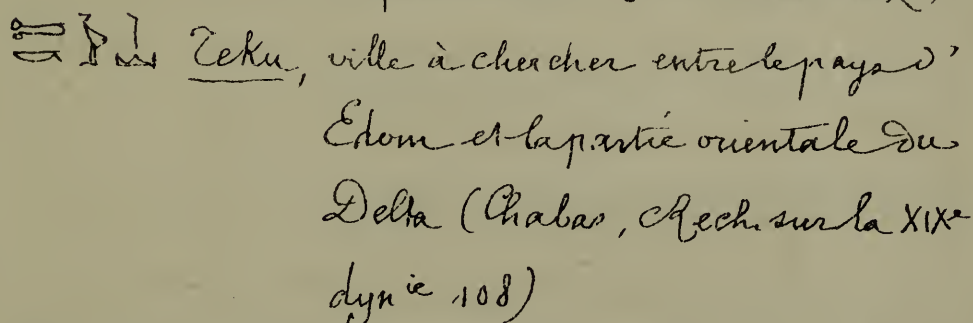 Teku, ville à chercher entre le pays d'
Edom et la partie orientale du
Delta (Chabas, Rech. sur la XIXe
dynie 108)